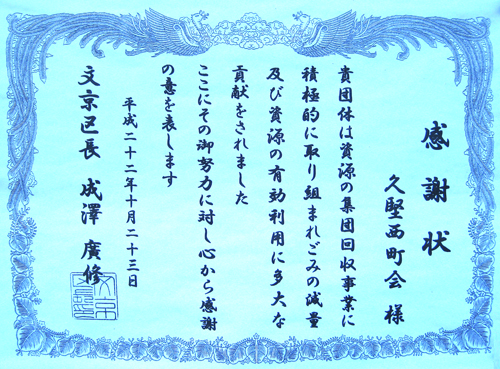 感謝状
久堅西町会 様
貴団体は資源の集団回収事業に
積極的に取り組まれごみの減量
及び資源の有効利用に多大な
貢献をされました
ここにその御努力に対し心から感謝
の意を表します
平成二十二年十月二十三日
文京区長 成澤 廣修